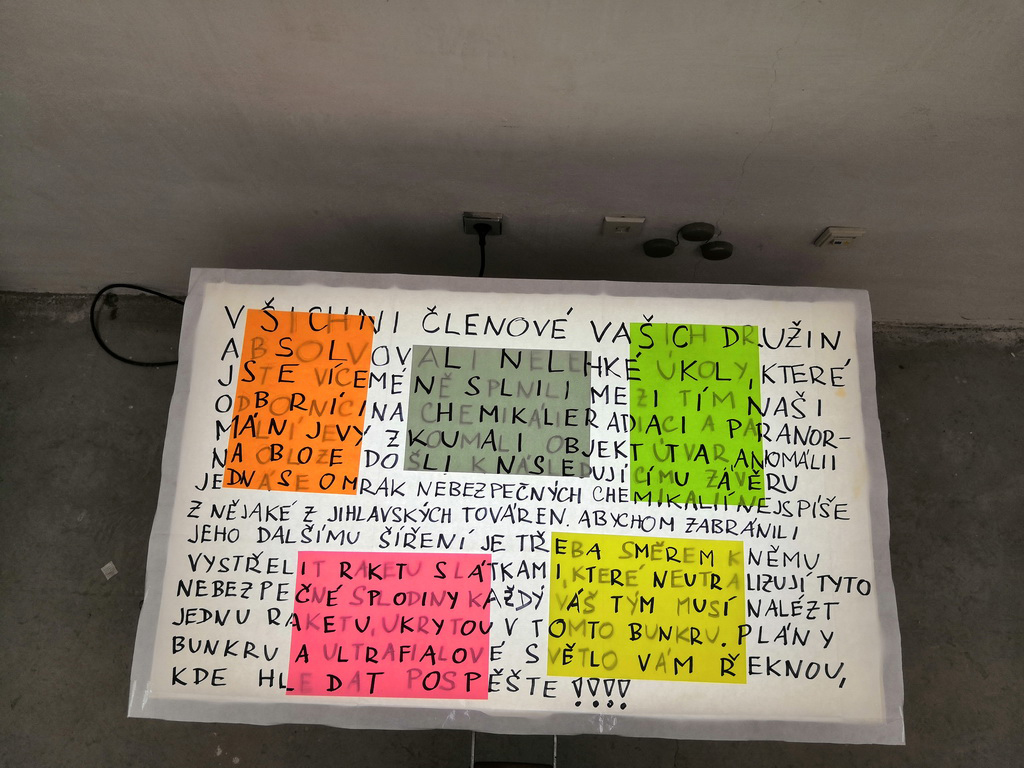 VŠICHNI ČLENOVÉ VAŠICH DRUŽIN
ABSOLVOVALI NELEHKÉ ÚKOLY, KTERÉ
JSTE VÍCEMÉNĚ SPLNILI MEZI TÍM NAŠI
ODBORNÍCI NA CHEMIKÁLIE RADIACI A PARANOR-
MÁLNÍ JEVY ZKOUMALI OBJEKT ÚTVAR ANOMÁLII
NA OBLOZE DOŠLI K NÁSLEDUJÍCÍMU ZÁVĚRU
JEDNÁ SE O MRAK NEBEZPEČNÝCH CHEMIKALIÍ NEJSPÍŠE
Z NĚJAKÉ Z JIHLAVSKÝCH TOVÁREN. ABYCHOM ZABRÁNILI
JEHO DALŠÍMU ŠÍŘENÍ JE TŘEBA SMĚREM K NĚMU
VYSTŘELIT RAKETU S LÁTKAMI, KTERÉ NEUTRALIZUJÍ TYTO
NEBEZPEČNÉ SPLODINY KAŽDÝ VÁŠ TÝM MUSÍ NALÉZT
JEDNU RAKETU, UKRYTOU V TOMTO BUNKRU. PLÁNY
BUNKRU A ULTRAFIALOVÉ SVĚTLO VÁM ŘEKNOU,
KDE HLEDAT POSPĚŠTE !!!!